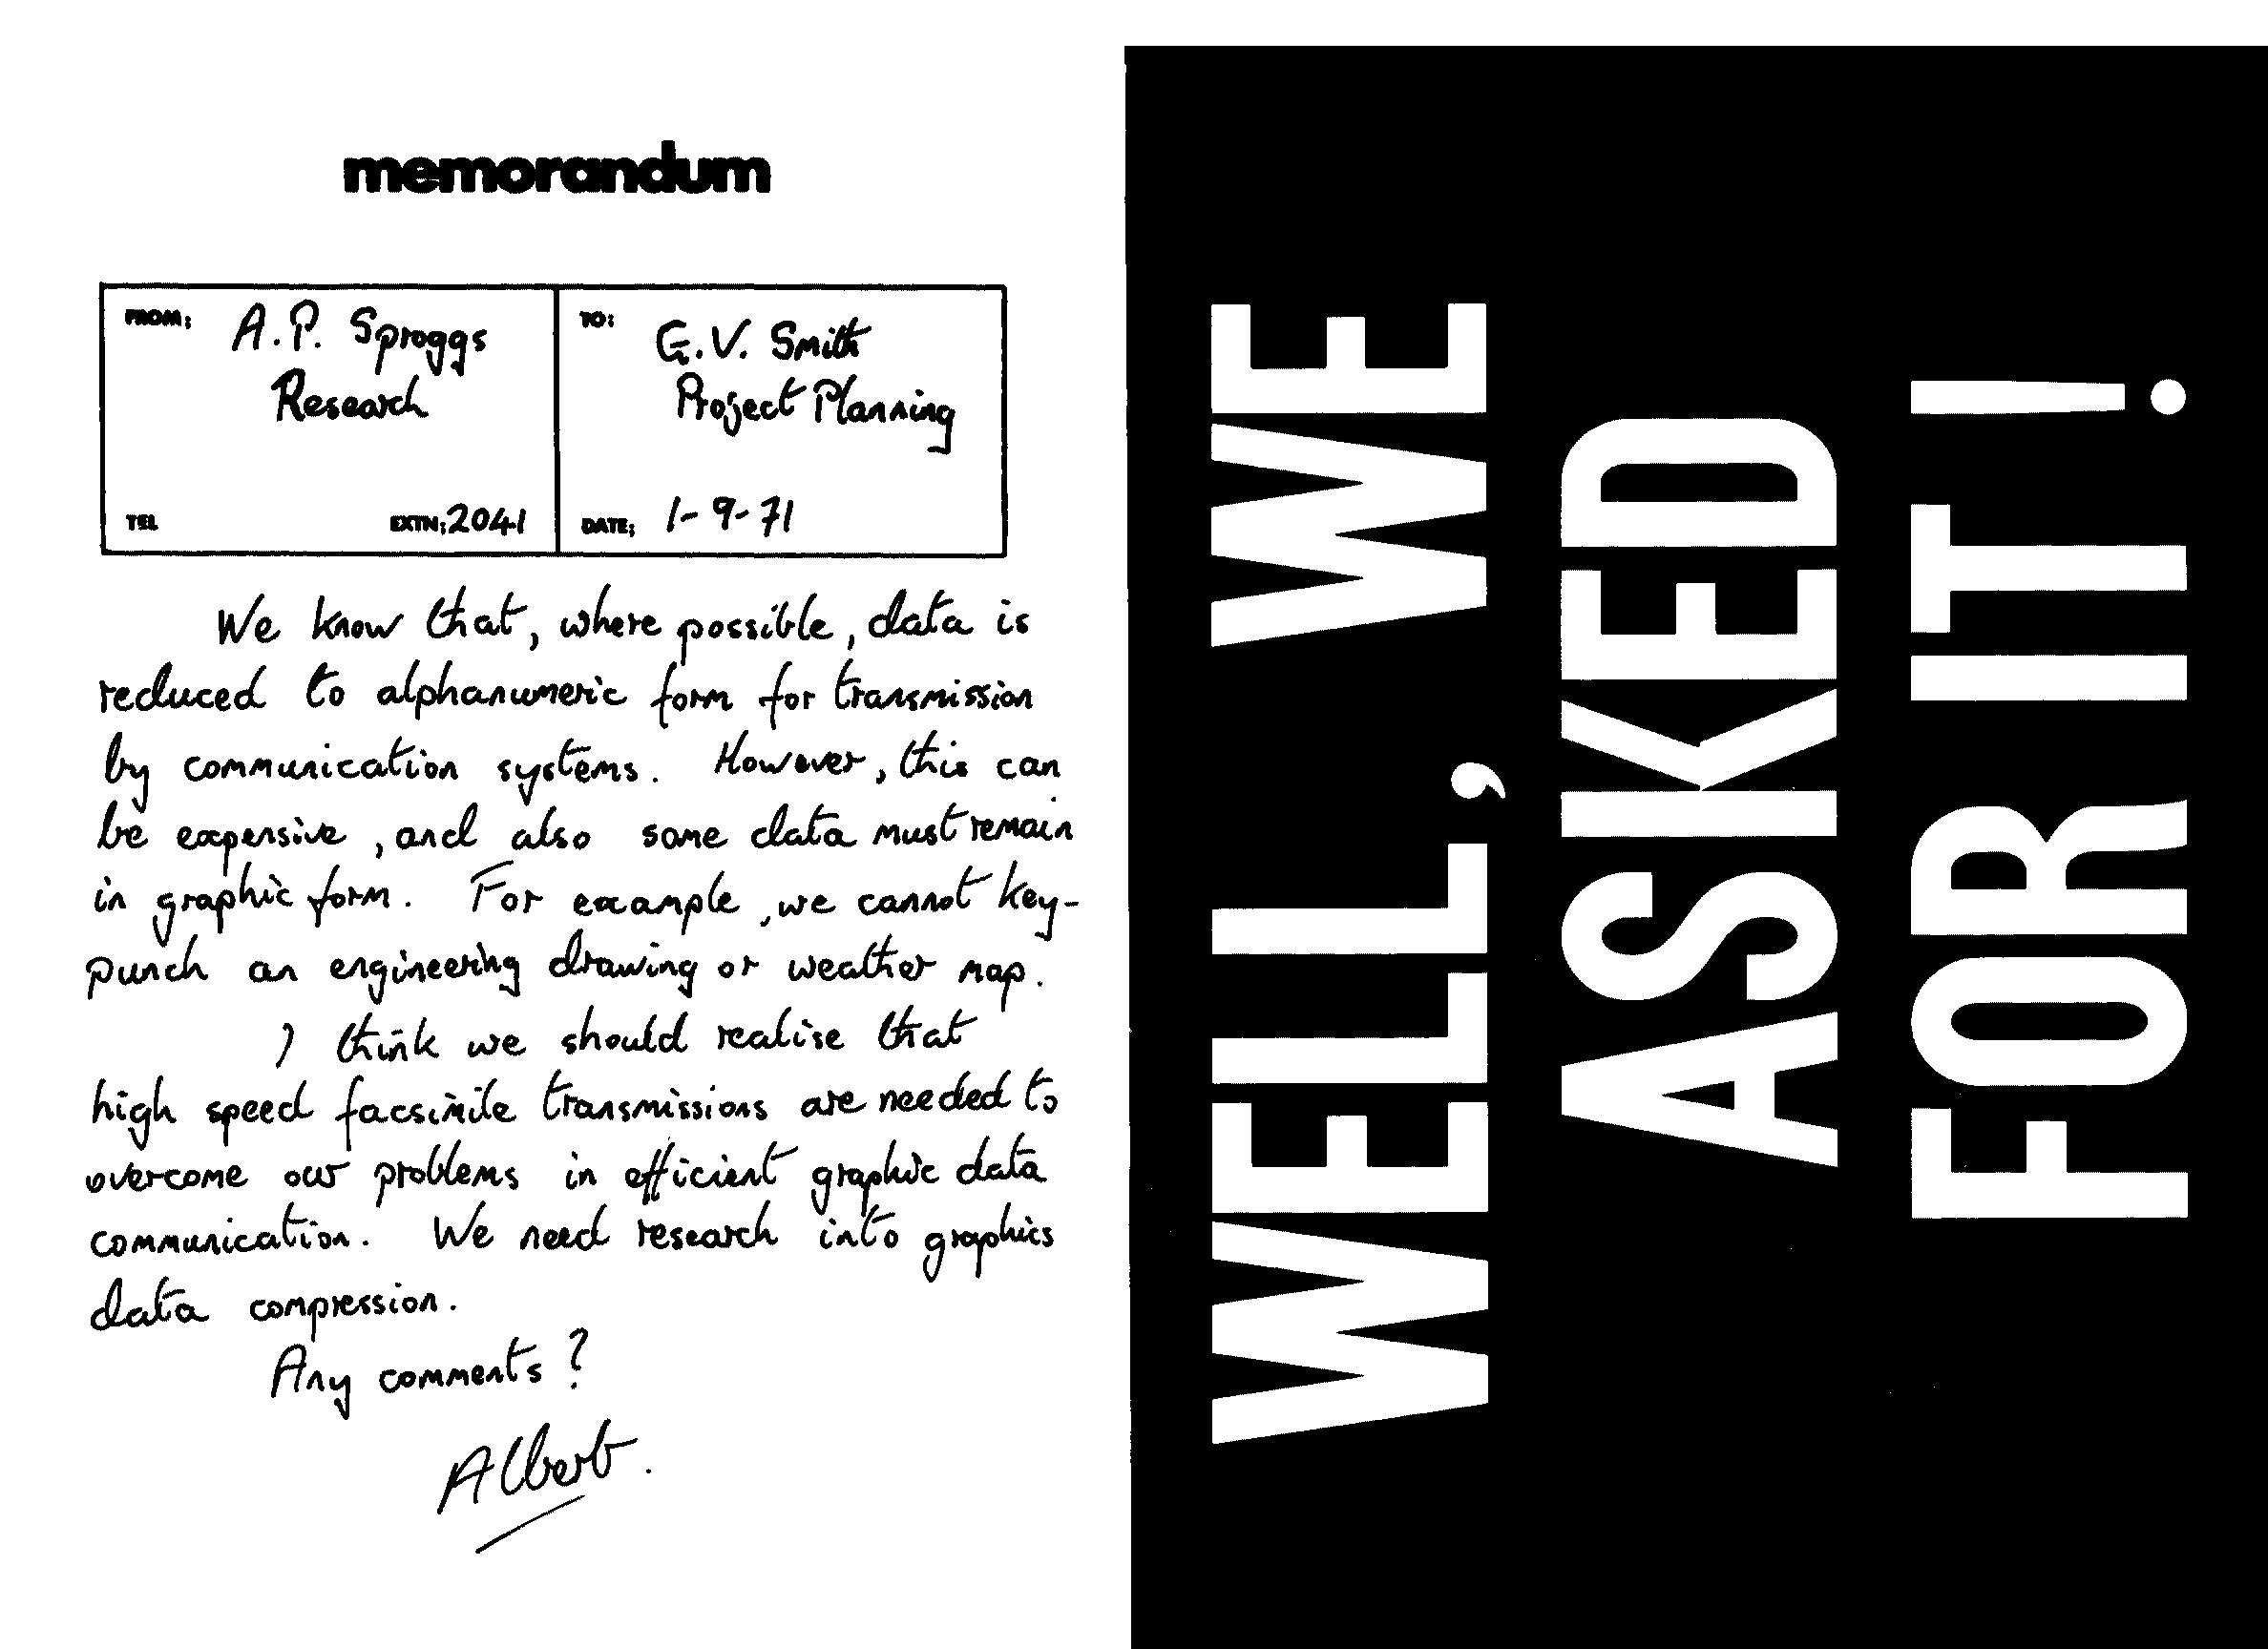 memorandum
FROM: A.P. Sproggs
Research
TEL EXTN: 2041
TO: G.V. Smith
Project Planning
DATE: 1-9-71
We know that, where possible, data is
reduced to alphanumeric form for transmission
by communication systems. However, this can
be expensive, and also some data must remain
in graphic form. For example, we cannot key-
punch an engineering drawing or weather map.
I think we should realise that
high speed facsimile transmissions are needed to
overcome our problems in efficient graphic data
communication. We need research into graphics
data compression.
Any comments?
Albert.
WELL, WE
ASKED
FOR IT!